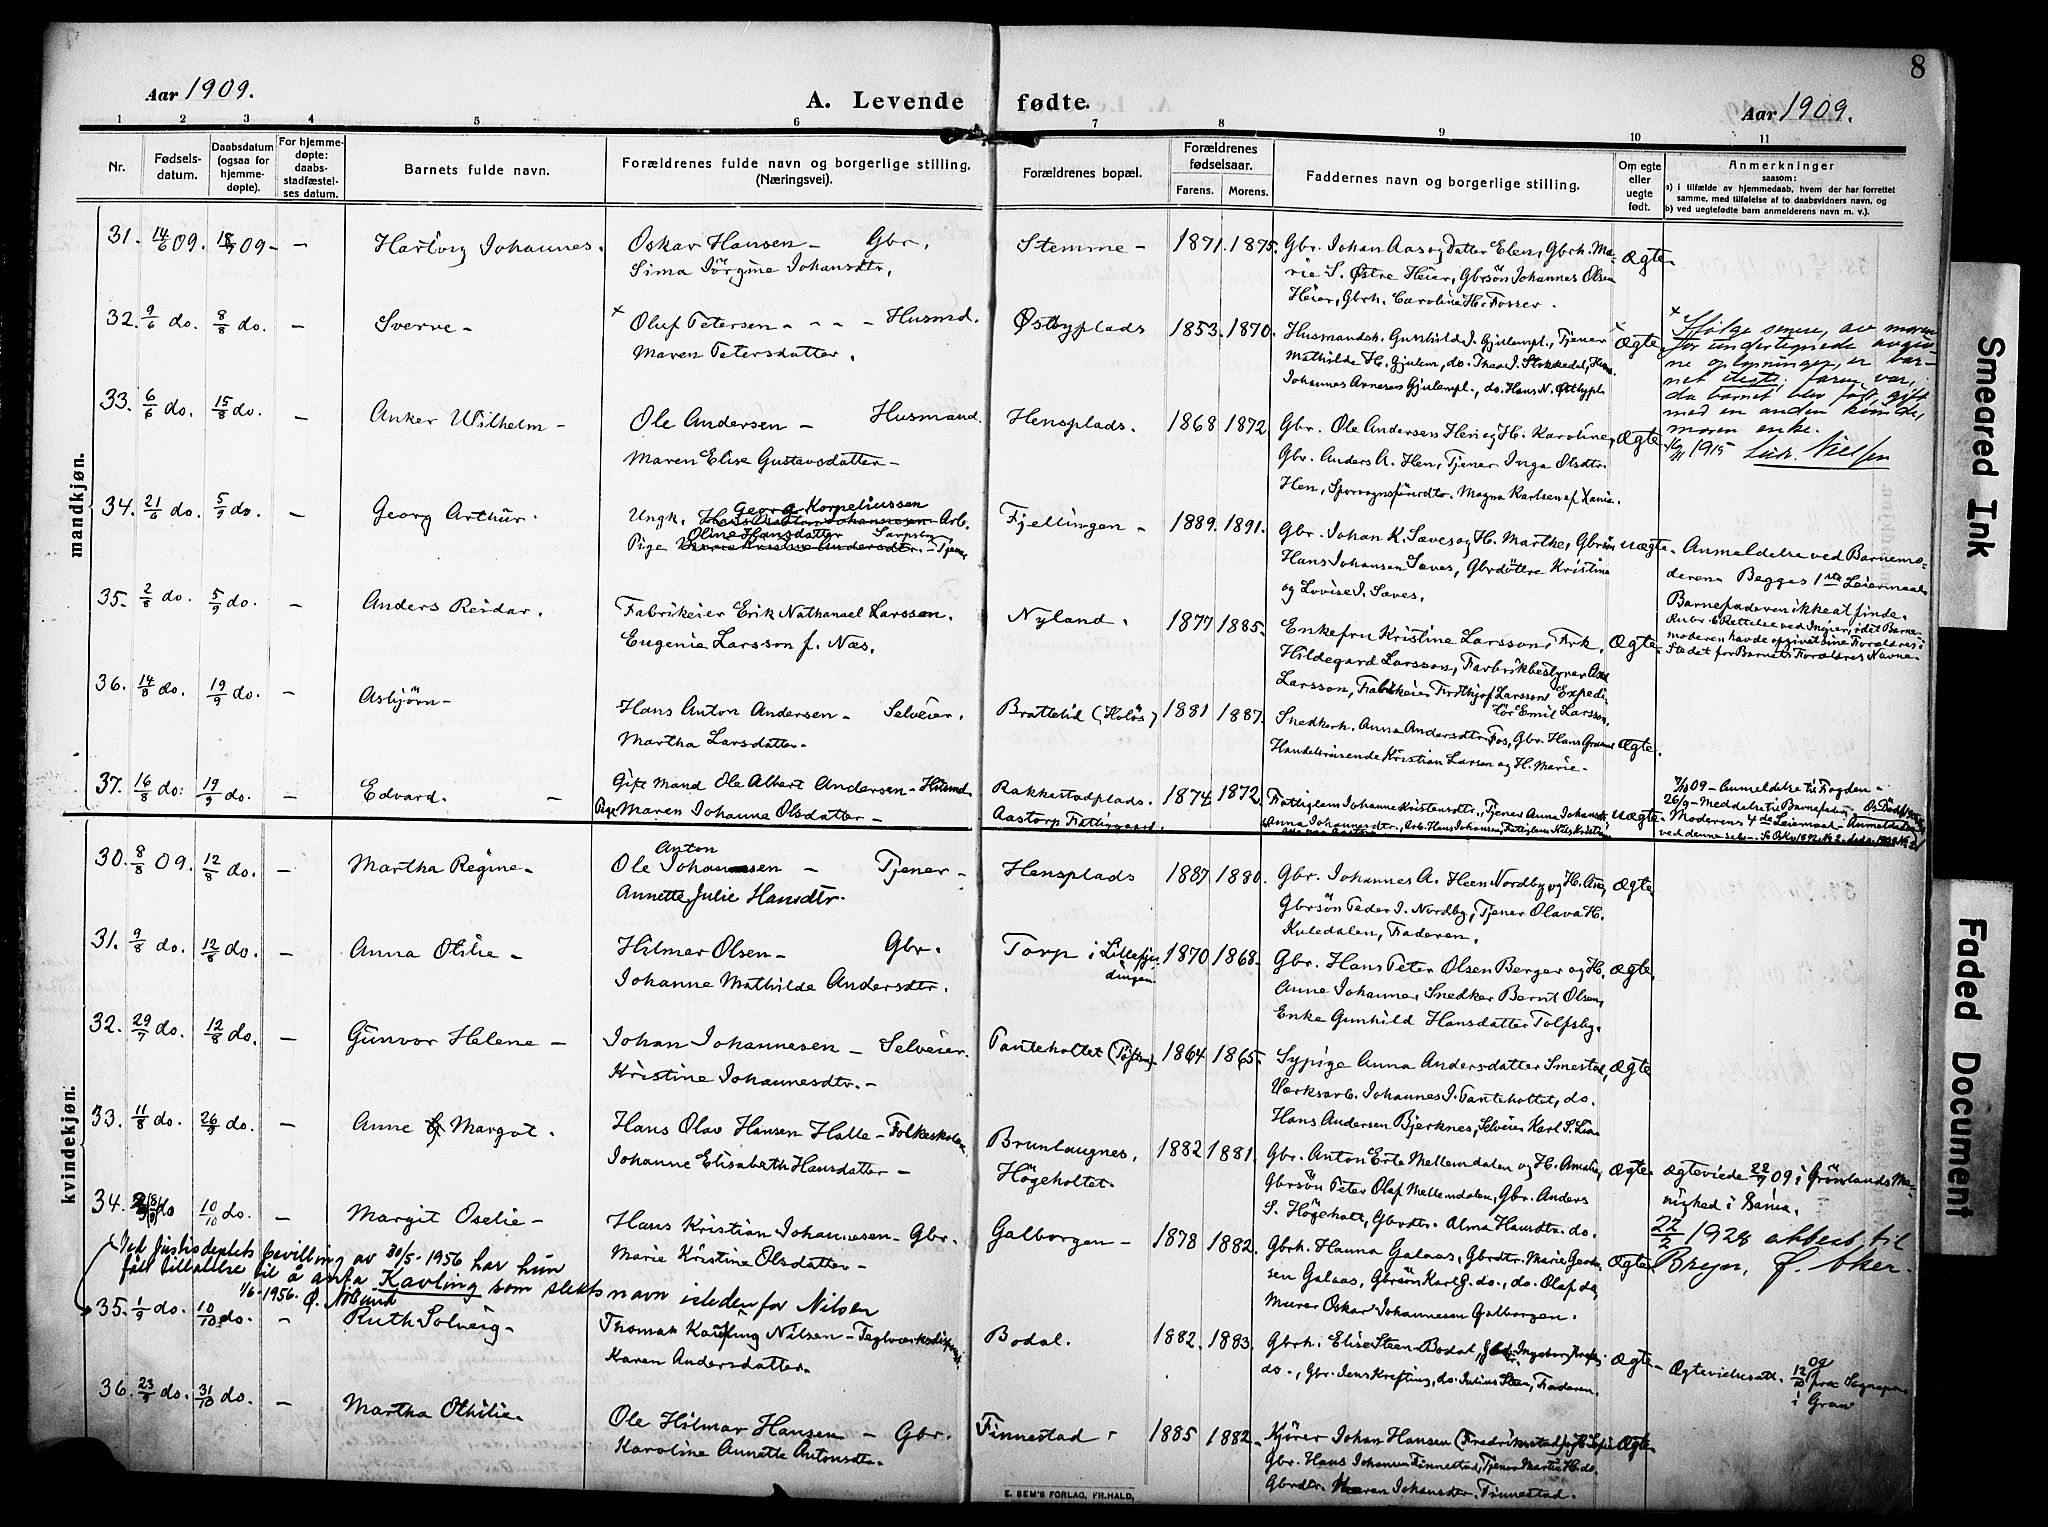 8
Aar 1909.
A. Levende fødte.
Aar 1909.
1 2 3 4 5 6 7 8 9 10 11
Nr.
Fødsels-
datum.
Daabsdatum
(ogsaa for
hjemme-
døpte).
For hjemme-
døpte:
daabs-
stadfæstel-
ses datum.
Barnets fulde navn.
Forældrenes fulde navn og borgerlige stilling.
(Næringsvei).
Forældrenes bopæl.
Forældrenes
fødselsaar.
Farens. Morens.
Faddernes navn og borgerlige stilling.
Om egte
eller
uegte
født.
Anmerkninger
saasom:
a) i tilfælde av hjemmedaab, hvem der har forrettet
samme, med tilføielse af to daabsvidners navn, og
b) ved uegtefødte barn anmelderens navn m. v.).
mandkjøn.
31. 14/6 09. 18/7 09 - - Hartvig Johannes. Oskar Hansen - Gbr. Stemme - 1871. 1875. Gbr. Johan Aas og Datter Elen, Gbrh. Ma-
Sima Jørgine Johansdtr. rie S. Østre Heier, Gbrsön Johannes Olsen Ægte.
Heier, Gbrh. Caroline H. Fosser.
32. 9/6 do. 8/8 do. - Sverre - × Oluf Petersen - - - Husmd. Østbyplads 1853. 1870. Husmandsh. Gunhild I. Gjulempl., Tjener × Ægte
Maren Petersdatter. Mathilde H. Gjulem, do. Thea I. Stokkedal, Husm.
Johannes Arnesen Gjulempl., do. Hans N. Østbypl.
× Ifølge senere, av moren
for undertegnede avgiv-
ne oplysninger, er bar-
net uegte; faren var,
da barnet blev født, gift
med en anden kvinde,
moren enke.
16/11 1915 Lud. Nielsen
33. 6/6 do. 15/8 do. - Anker Wilhelm - Ole Andersen - Husmand. Hensplads. 1868 1872 Gbr. Ole Andersen Hen og H. Karoline, Ægte.
Maren Elise Gustavsdatter - Gbr. Anders A. Hen, Tjener Inga Olsdtr.
Hen, Sporvognsførerdtr. Magna Karlsen af Xania.
34. 21/6 do. 5/9 do. - Georg Arthur. Georg Korneliussen
Ungk. Arb. Fjellingen - 1889. 1891. Gbr. Johan K. Saves og H. Marthe, Gbrsön uægte.
Oline Hansdatter Sarpsby
Pige - Tjener Hans Johansen Saves, Gbrdöttre Kristine
og Lovise I. Saves.
Anmeldelse ved Barnemo-
deren. Begges 1ste Leiermaal.
Barnefaderen ikke at finde.
Rubr. 6 Rettelse ved Ingier, idet Barne-
moderen havde opgivet sine Forældres i
Stedet for Barnets Forældres Navne.
35. 2/8 do. 5/9 do. - Anders Reidar. Fabrikeier Erik Nathanael Larsson. Nyland. 1877 1885. Enkefru Kristine Larsson, Frk. Ægte.
Eugenie Larsson f. Næs. Hildegard Larsson, Fabrikbestyrer
Larsson, Fabrikeier Fridtjof Larsson, Expedi-
tör Emil Larsson.
36. 14/8 do. 19/9 do. - Asbjörn - Hans Anton Andersen - Selveier. Brattelid (Holøs) 1881 1887. Snedkerh. Anna Andersdtr. Fos, Gbr. Hans Ægte.
Martha Larsdatter. Handelsreisende Kristian Larsen og H. Marie -
37. 16/8 do. 19/9 do. - Edvard. - Gift Mand Ole Albert Andersen - Husmd. Rakkestadplads. 1874 1872. Fattiglem Johanne Kristensdtr., Tjener Anna uægte.
Pige Maren Johanne Olsdatter - Aastorp Fattiggaard. Anna Johannesdtr., Arb. Hans Johansen, Fattiglem
7/10 09 - Anmeldelse til Fogden -
26/9 - Meddelse til Barnefaderen
Moderens 4de Leiermaal - Anmeldelse
ved denne selv -
kvindekjøn.
30. 8/8 09. 12/8 do. - Martha Regine - Anton
Ole Johannesen - Tjener - Hensplads 1887 1880. Gbr. Johannes A. Heen Nordby og H. Ægte
Annette Julie Hansdtr. Gbrsön Peder I. Nordby, Tjener Olava H.
Kuledalen, Faderen.
31. 9/8 do. 12/8 do. - Anna Otilie - Hilmar Olsen - Gbr. Torp i Lillefjel-
dingen 1870 1868. Gbr. Hans Peter Olsen Berger og H. Ægte.
Johanne Mathilde Andersdtr. Anne Johanne, Snedker Bernt Olsen,
Enke Gunhild Hansdatter Tolfsby.
32. 29/7 do. 12/8 do. - Gunvor Helene - Johan Johannesen - Selveier. Tanteholtet 1864 1865. Sypige Anna Andersdatter Smestad, Ægte
Kristine Johannesdtr. - Værksarb. Johannes J. Tanteholtet, do.
Hans Andersen Bjerknes, Selveier Karl S. Lian
33. 11/8 do. 26/9 do. - Anne Margot. Hans Olav Hansen Halle - Folkeskolel. Brunlaugnes, 1882 1881. Gbr. Anton Erte Mellemdalen og H. Amalie, Ægte -
Johanne Elisabeth Hansdatter - Högeholtet. Gbrsön Peter Olaf Mellemdalen, Gbr. Anders
S. Högeholt, Gbrdtr. Alma Hansdtr. do.
Ægteviede 22/7 09 i Grönlands Me-
nighed i Xania.
34. do 10/10 do. - Margit Oselie - Hans Kristian Johannesen - Gbr. Galborgen - 1878 1882. Gbrh. Hanna Galaas, Gbrdtr. Marie Ægte.
Marie Kristine Olsdatter - sen Galaas, Gbrsön Karl G. do., do. Olaf do,
Murer Oskar Johannesen Galborgen.
22/2 1928 attest til
Bryn, Ø. Aker.
Ved Justisdeptets bevilling av 30/5-1956 har hun
fått tillatelse til å anta Kavling som slekts navn istedenfor Nilsen
1/6-1956.
35. 1/9 do. 10/10 do. - Ruth Solveig - Thomas Kavling Nilsen - Teglverksdisponent. Bodal. 1882. 1883. Gbrh. Elise Steen Bodal, Ægte -
Karen Andersdatter. do., Gbr. Jens Krefting, do. Julius Steen, Faderen.
Ægtevidsatt.
36. 23/9 do. 31/10 do. - Martha Othilie - Ole Hilmar Hansen - Gbr. Finnestad - 1885 1882 - Kjörer Johan Hansen (Fredrikstad) Ægte
Karoline Annette Antonsdtr. Gbr. Hans Johansen Finnestad, Tjener Martin H. do.
Gbrdtr. Maren Johansdtr. Finnestad.
E. SEM'S FORLAG, FR.HALD.
Smeared Ink
Faded Document